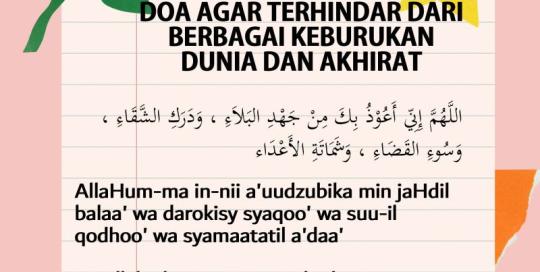 DOA AGAR TERHINDAR DARI
BERBAGAI KEBURUKAN
DUNIA DAN AKHIRAT
اللَّهُمَّ إِنِّي أَعُوْذُ بِكَ مِنْ جَهْدِ البَلاَءِ ، وَدَرَكِ الشَّقَاءِ ،
وَسُوءِ القَضَاءِ ، وَشَمَاتَةِ الأَعْدَاء
AllaHum-ma in-nii a'uudzubika min jaHdil
balaa' wa darokisy syaqoo' wa suu-il
qodhoo' wa syamaatatil a'daa'